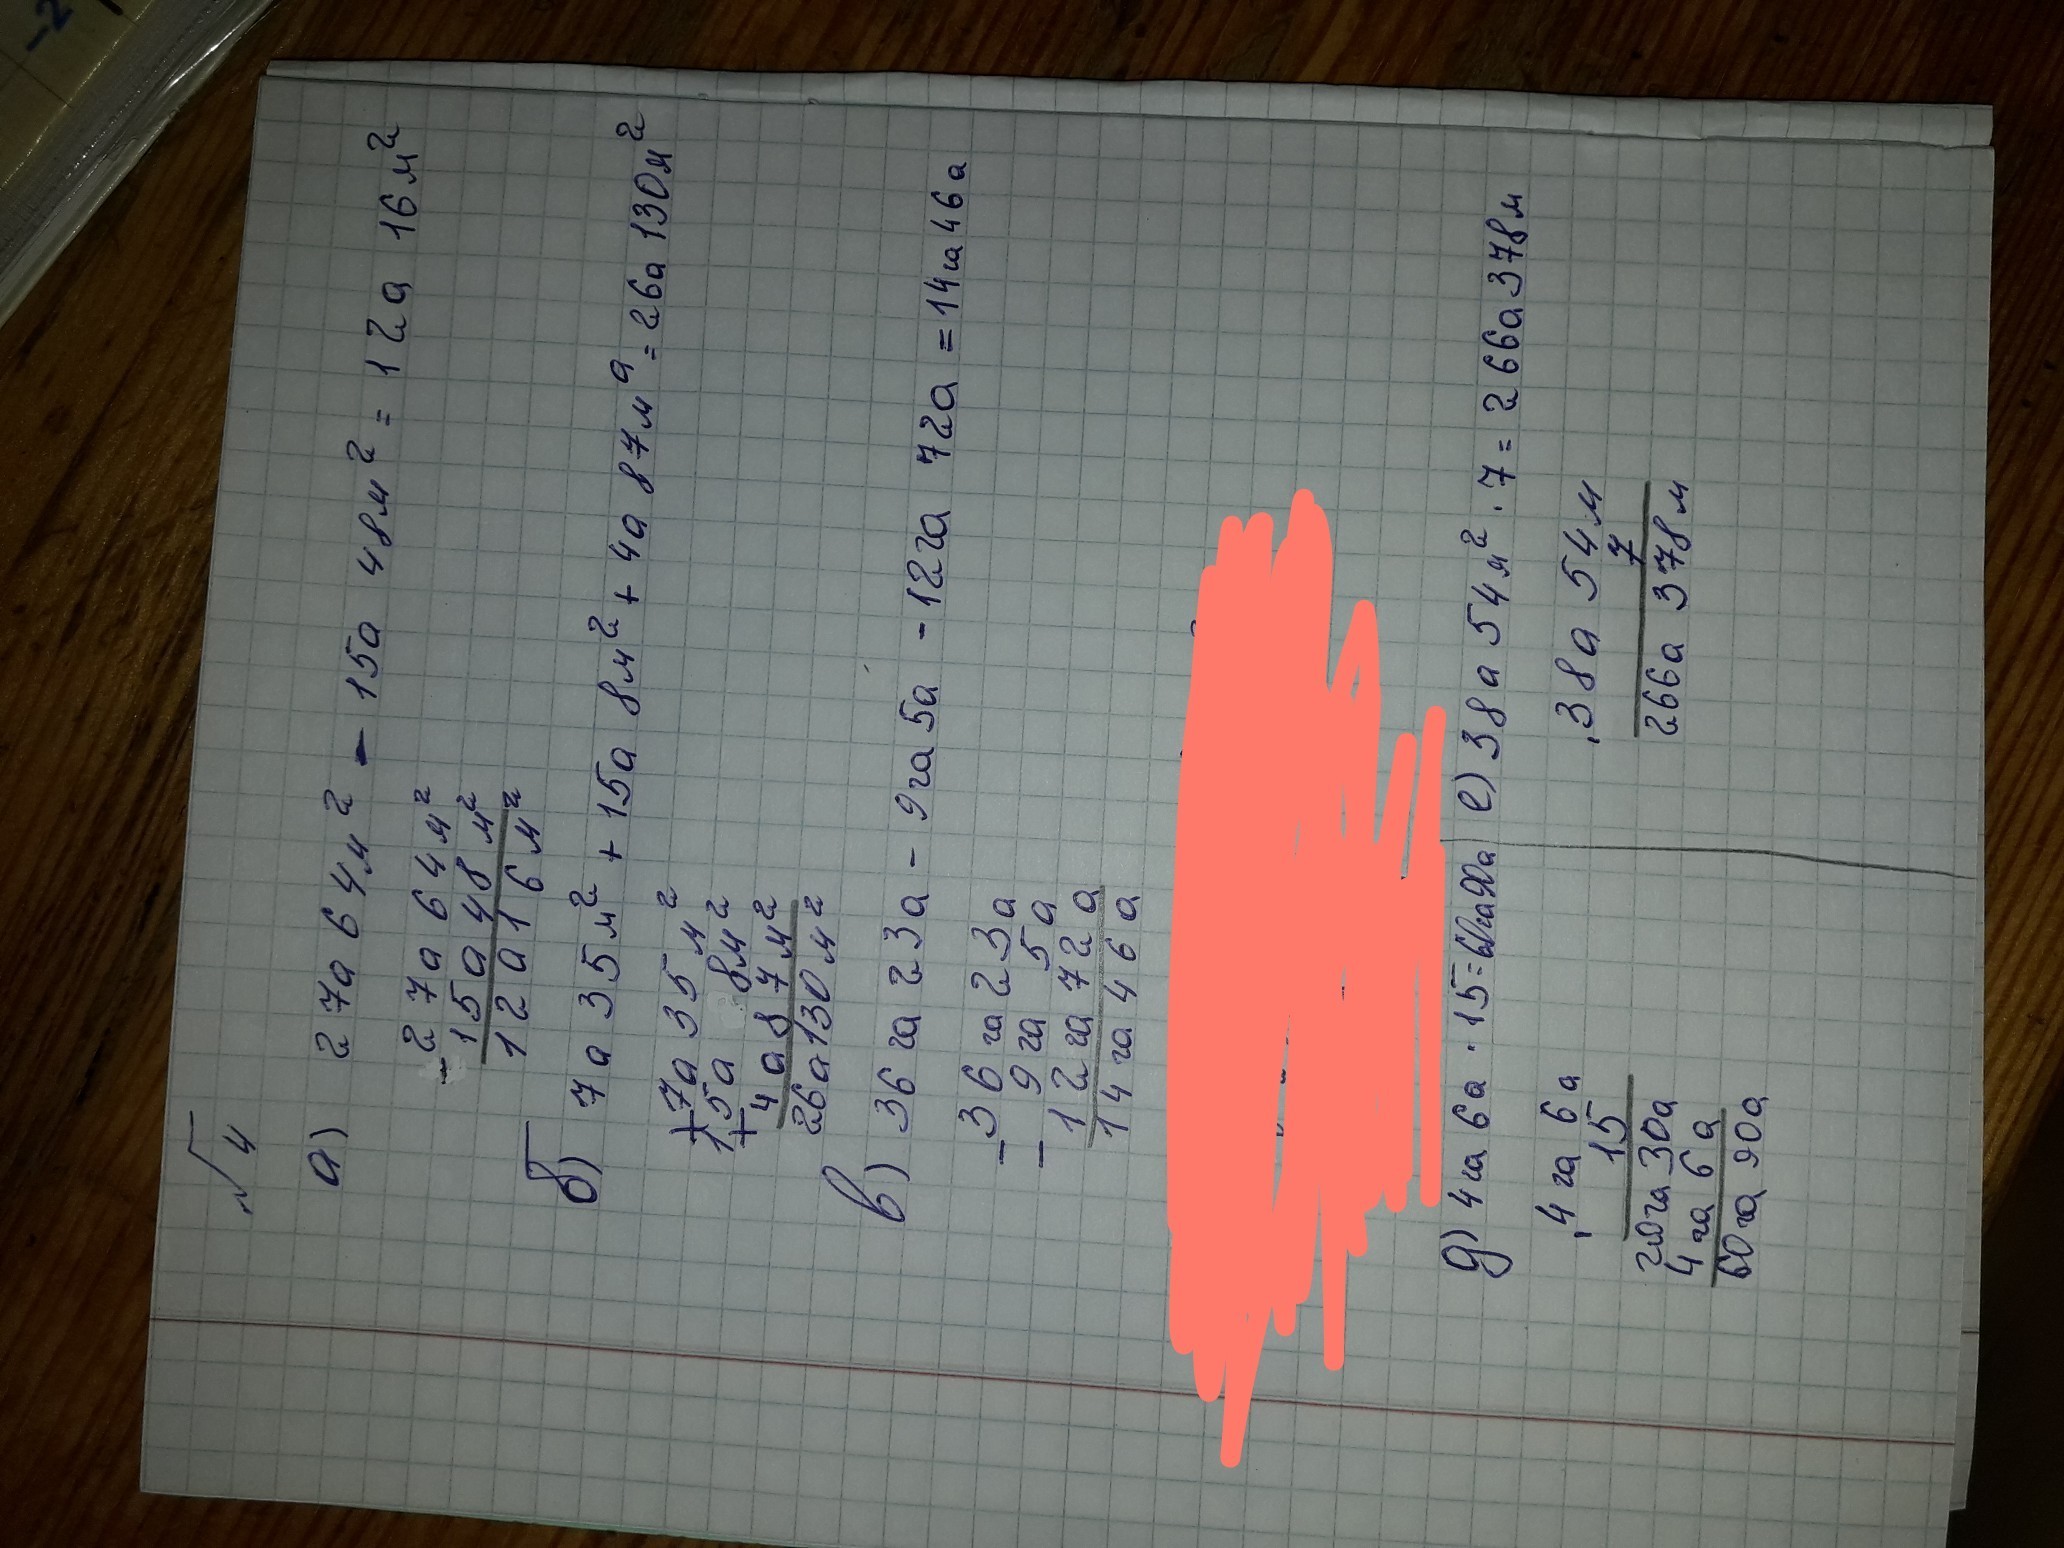 -2
√4
а) 27а 64м² - 15а 48м² = 12а 16м²
- 27а 64м²
15а 48м²
12а 16м²
б) 7а 35м² + 15а 8м² + 4а 87м² = 26а 130м²
+ 7а 35м²
15а 8м²
+ 4а 87м²
26а 130м²
в) 36га 23а - 9га 5а - 12га 72а = 14га 46а
- 36га 23а
- 9га 5а
12га 72а
14га 46а
д) 4га 6а · 15 = 60га 90а е) 38а 54м² · 7 = 266а 378м
· 4га 6а
15
20га 30а
4га 6а
60га 90а
· 38а 54м
7
266а 378м